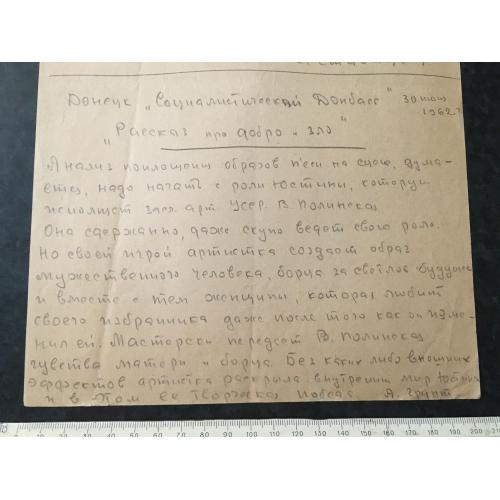 Донецк „Социалистический Донбасс" 30 июня
1962 г.
„Рассказ про добро и зло"
Анализ воплощения образов пьесы на сцене, дума-
ется, надо начать с роли Юстины, которую
исполняет засл. арт. Усср. В Полинская
Она сдержанно, даже скупо ведет свою роль.
Но своей игрой артистка создает образ
мужественного человека, борца за светлое будущее
и вместе с тем женщины, которая любит
своего избранника даже после того как он изме-
нил ей. Мастерски передает В. Полинская
чувства матери и борца. Без каких либо внешних
эффектов артистка раскрыла внутренний мир Юстины
и в этом ее творческая победа А. Грант.